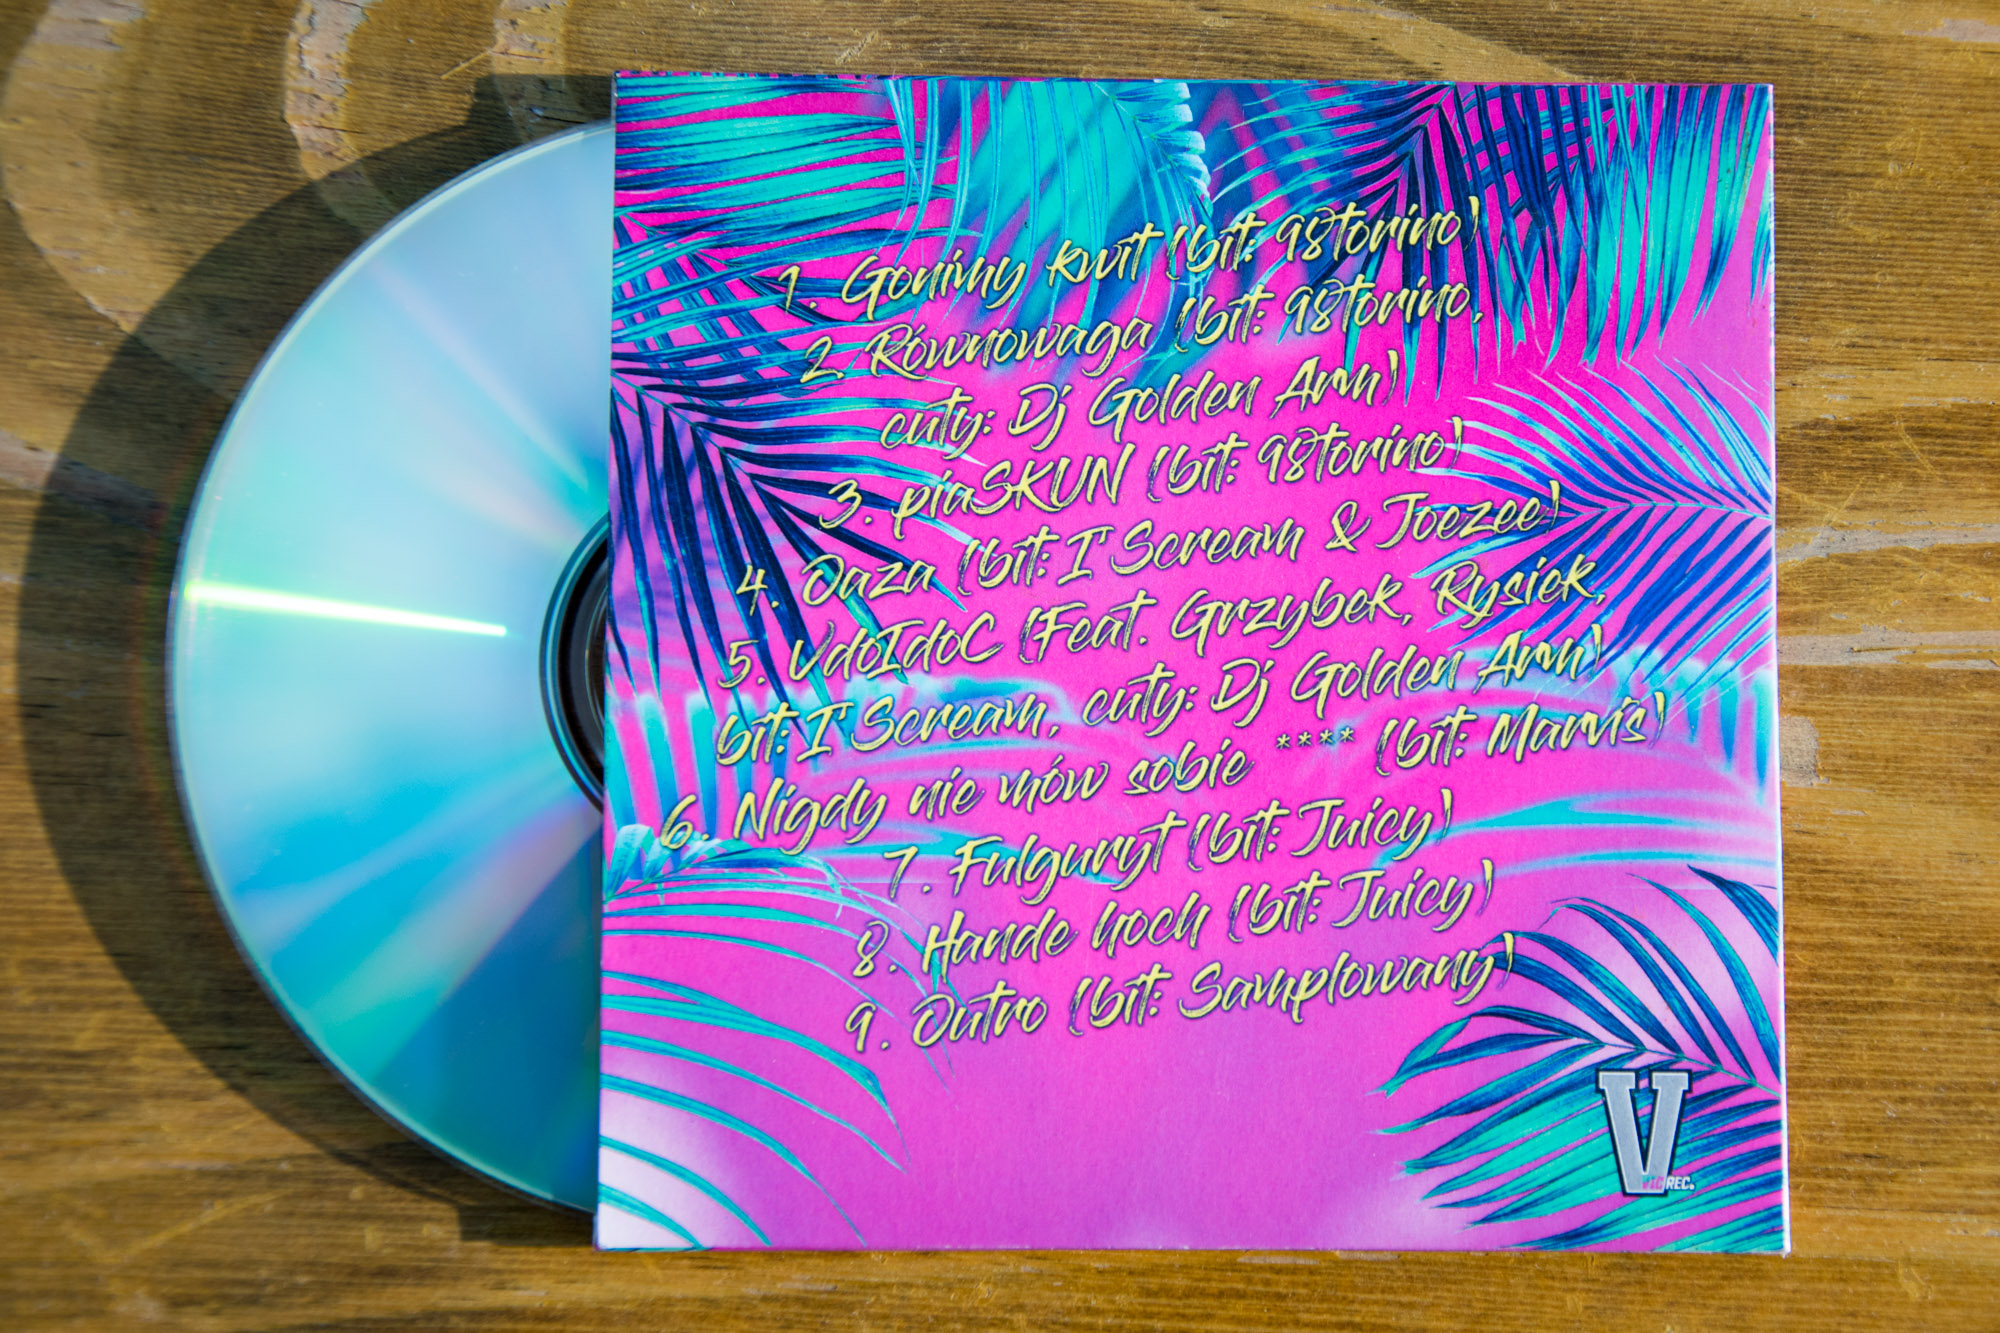 1. Gonimy kwit (bit: 98torino)
2. Równowaga (bit: 98torino,
cuty: Dj Golden Arm)
3. piaSKUN (bit: 98torino)
4. Oaza (bit: I'Scream & Joezee)
5. VdoIdoC (Feat. Grzybek, Rysiek,
bit: I'Scream, cuty: Dj Golden Arm)
6. Nigdy nie mów sobie **** (bit: Marvis)
7. Fulguryt (bit: Juicy)
8. Hande hoch (bit: Juicy)
9. Outro (bit: Samplowany)
V
VIC REC.